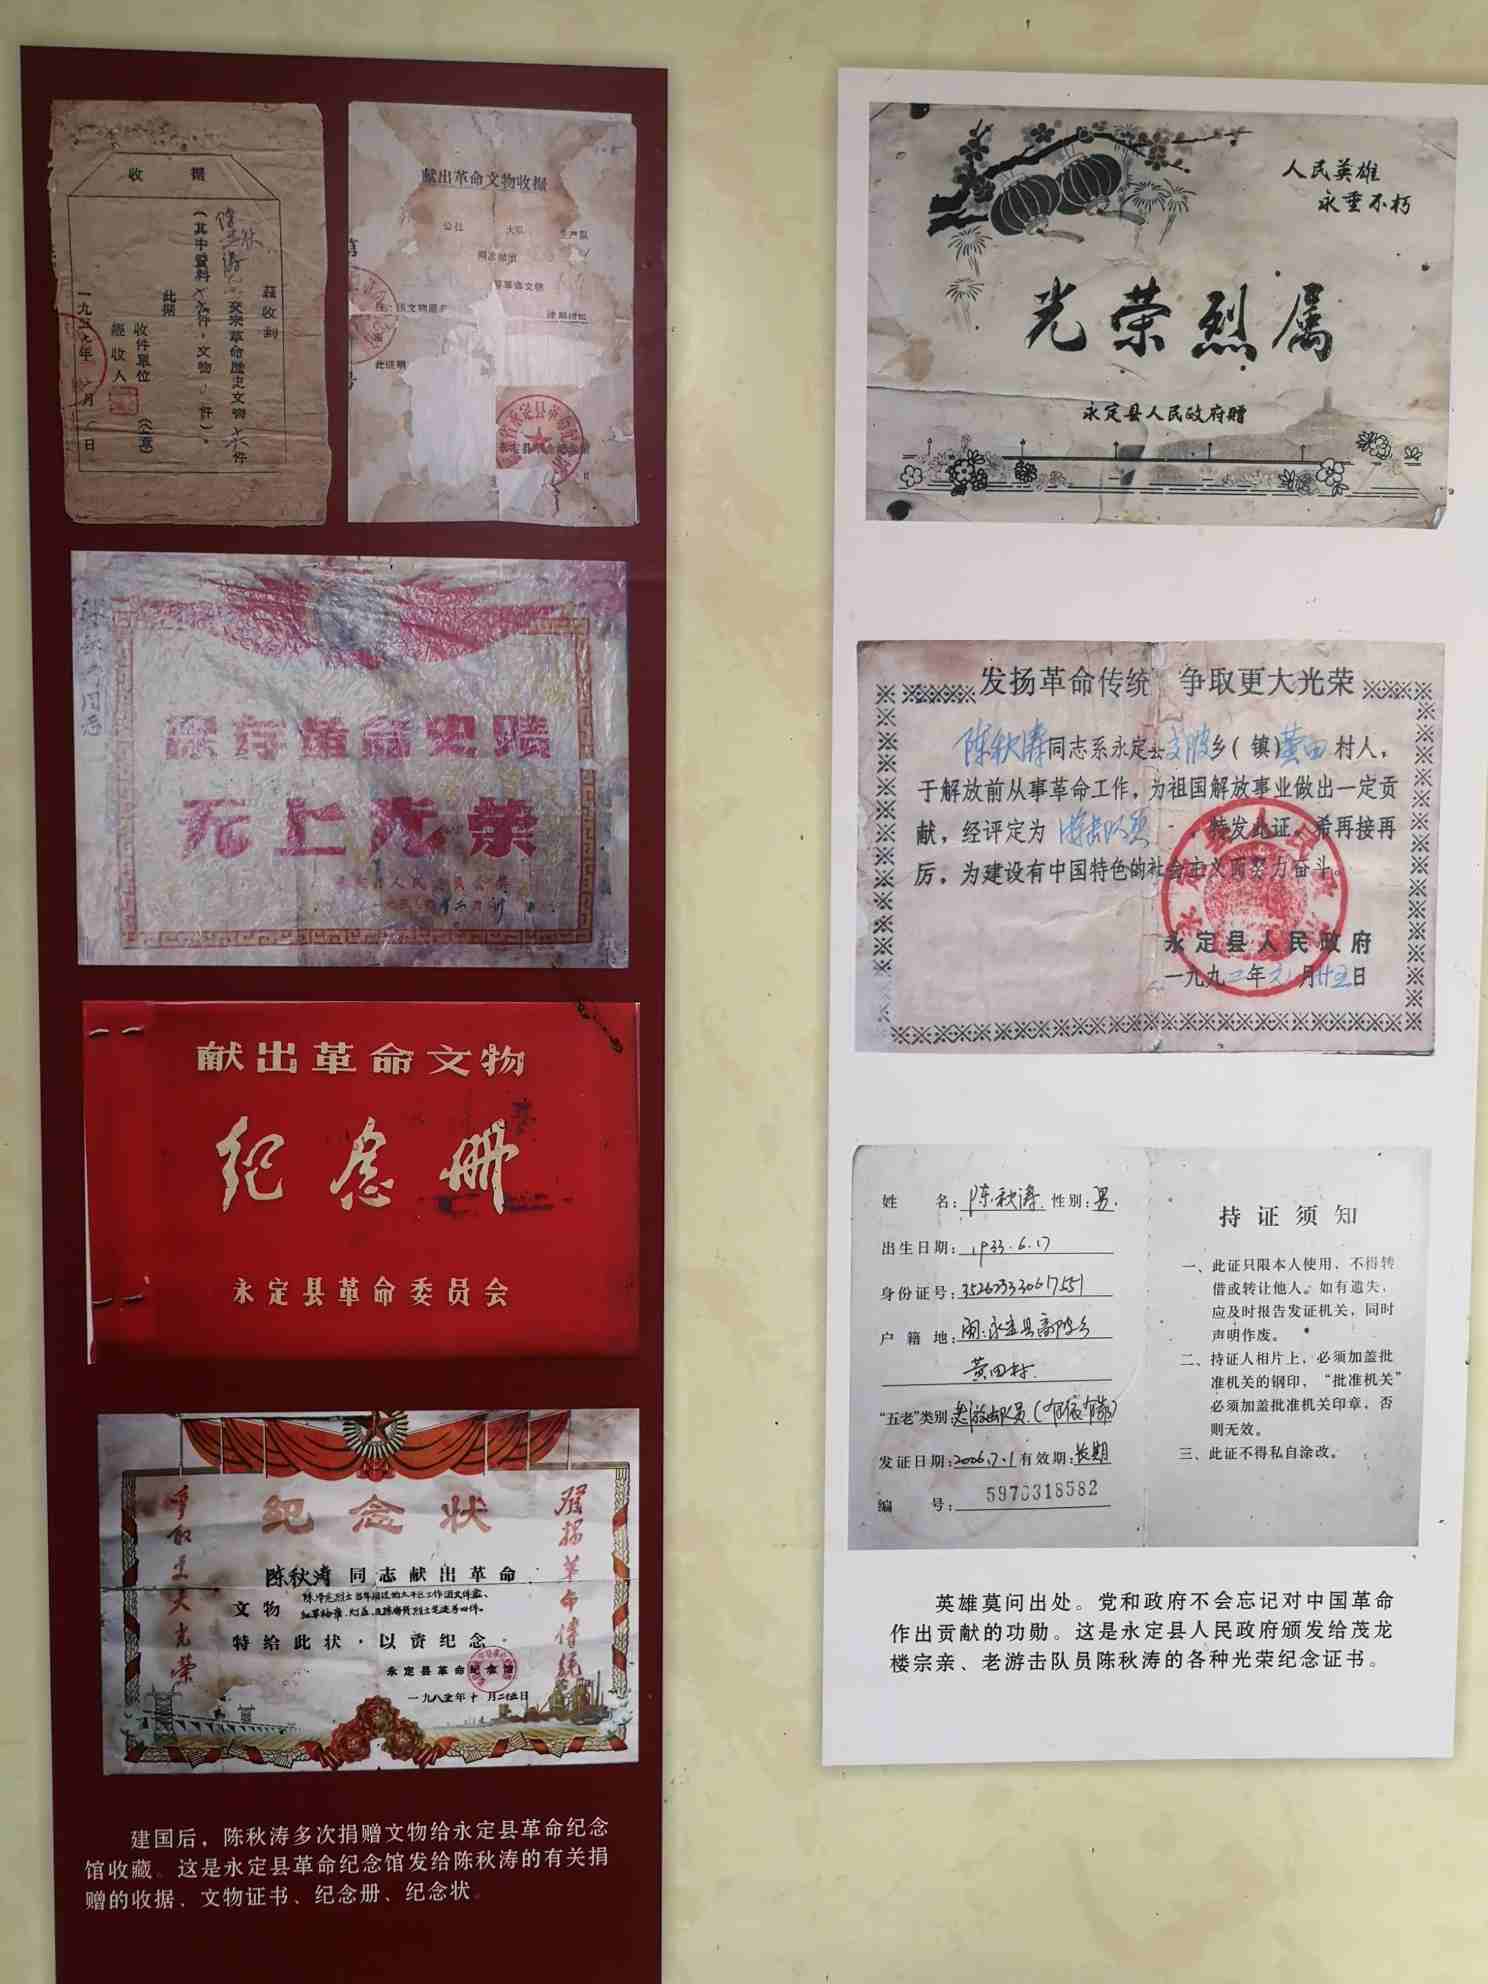 收据
兹收到
交来革命历史文物
件
(其中资料
件,文物
件)。
此据
收件单位
(公章)
经收人
献出革命文物收据
公社
大队
生产队
此证明
保存革命史蹟
无上光荣
献出革命文物
纪念册
永定县革命委员会
纪念状
发扬革命传统
争取更大光荣
陈秋涛同志献出革命
文物
特给此状,以资纪念。
永定县革命纪念馆
一九八五年十月二十五日
建国后,陈秋涛多次捐赠文物给永定县革命纪念
馆收藏。这是永定县革命纪念馆发给陈秋涛的有关捐
赠的收据、文物证书、纪念册、纪念状。
人民英雄
永垂不朽
光荣烈属
永定县人民政府赠
发扬革命传统 争取更大光荣
陈秋涛同志系永定县 乡(镇)黄田村人,
于解放前从事革命工作,为祖国解放事业做出一定贡
献,经评定为 特发此证。希再接再
厉,为建设有中国特色的社会主义而努力奋斗。
永定县人民政府
一九九二年元月廿五日
姓名:陈秋涛 性别:男
出生日期:1933.6.17
身份证号:352623330617551
户籍地:闽永定县高陂乡
黄田村
“五老”类别:老游击队员
发证日期:2006.7.1 有效期:长期
编号:5970318582
持证须知
一、此证只限本人使用,不得转
借或转让他人。如有遗失,
应及时报告发证机关,同时
声明作废。
二、持证人相片上,必须加盖批
准机关的钢印,“批准机关”
必须加盖批准机关印章,否
则无效。
三、此证不得私自涂改。
英雄莫问出处。党和政府不会忘记对中国革命
作出贡献的功勋。这是永定县人民政府颁发给茂龙
楼宗亲、老游击队员陈秋涛的各种光荣纪念证书。